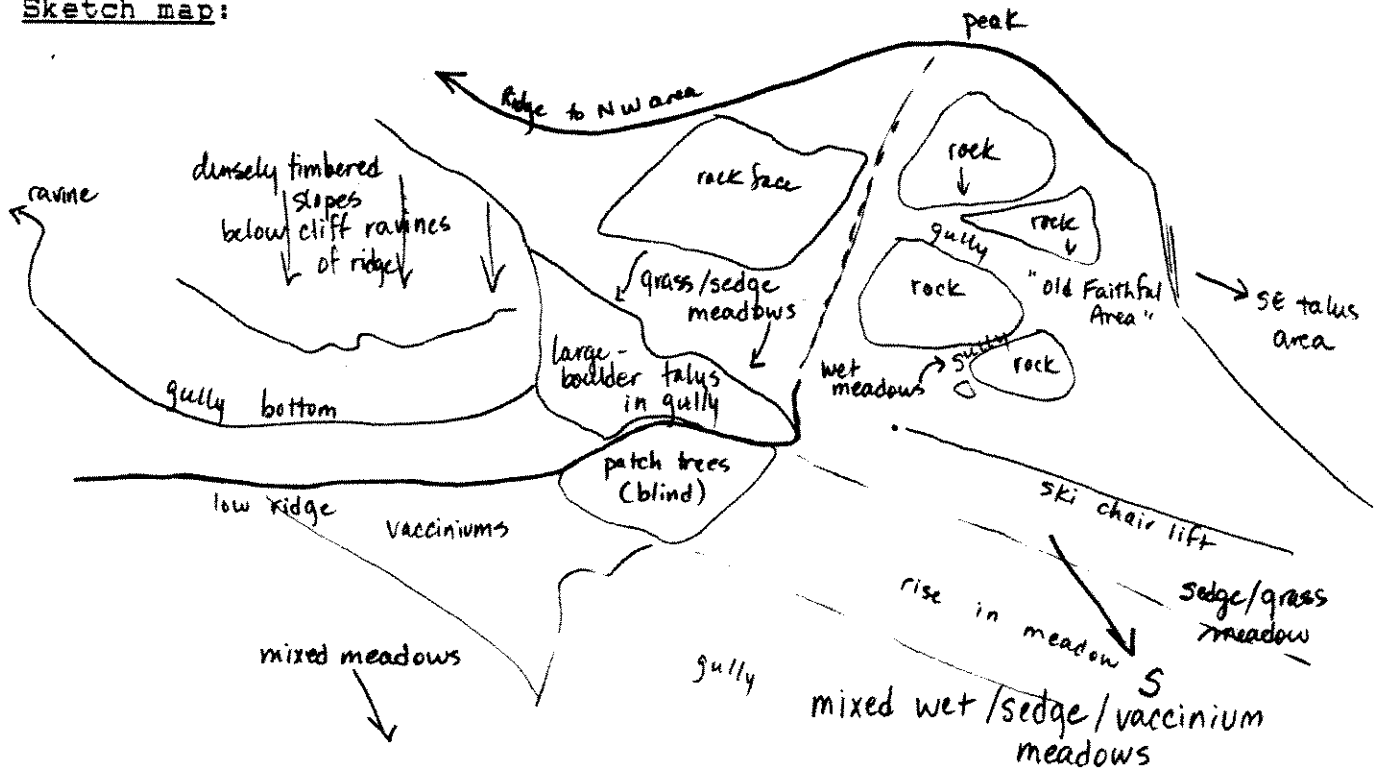 Sketch map:
peak
Ridge to NW area
densely timbered
slopes
below cliff ravines
of ridge
ravine
rock face
rock
rock
gully
rock
"Old Faithful
Area"
SE talus
area
grass/sedge
meadows
large-
boulder talus
in gully
wet
meadows
gully
rock
gully bottom
patch trees
(blind)
low ridge
vacciniums
ski chair lift
sedge/grass
meadow
rise in meadow
S
mixed meadows
gully
mixed wet/sedge/vaccinium
meadows